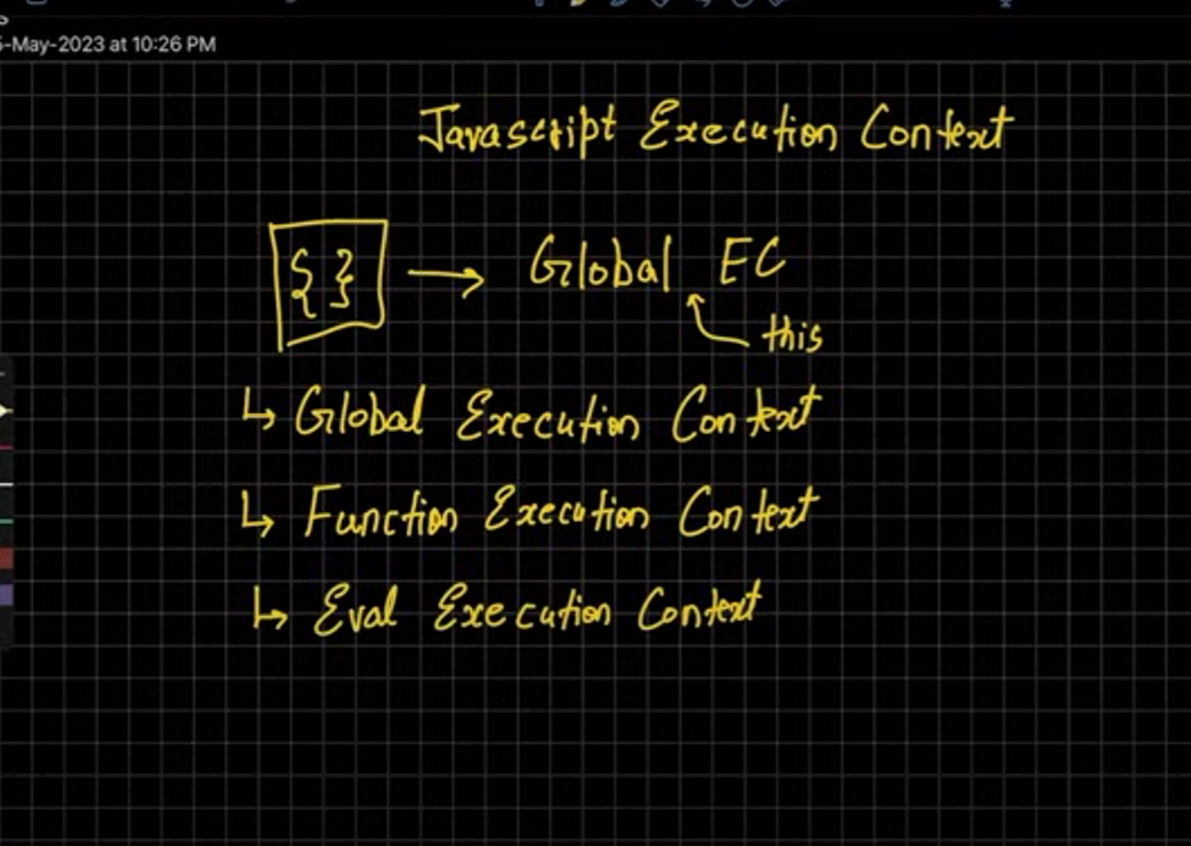 -May-2023 at 10:26 PM
Javascript Execution Context
{ } → Global EC
this
↳ Global Execution Context
↳ Function Execution Context
↳ Eval Execution Context